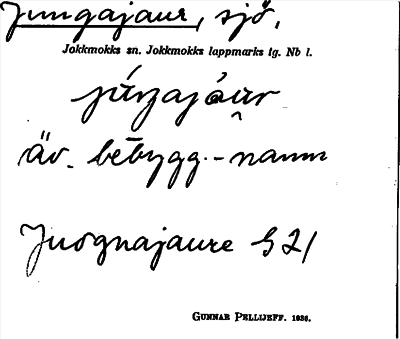 Jungajaur, sjö,
Jokkmokks sn. Jokkmokks lappmarks tg. Nb l.
äv. bebygg.-namn
Juognajaure G 21
GUNNAR PELLIJEFF. 1936.